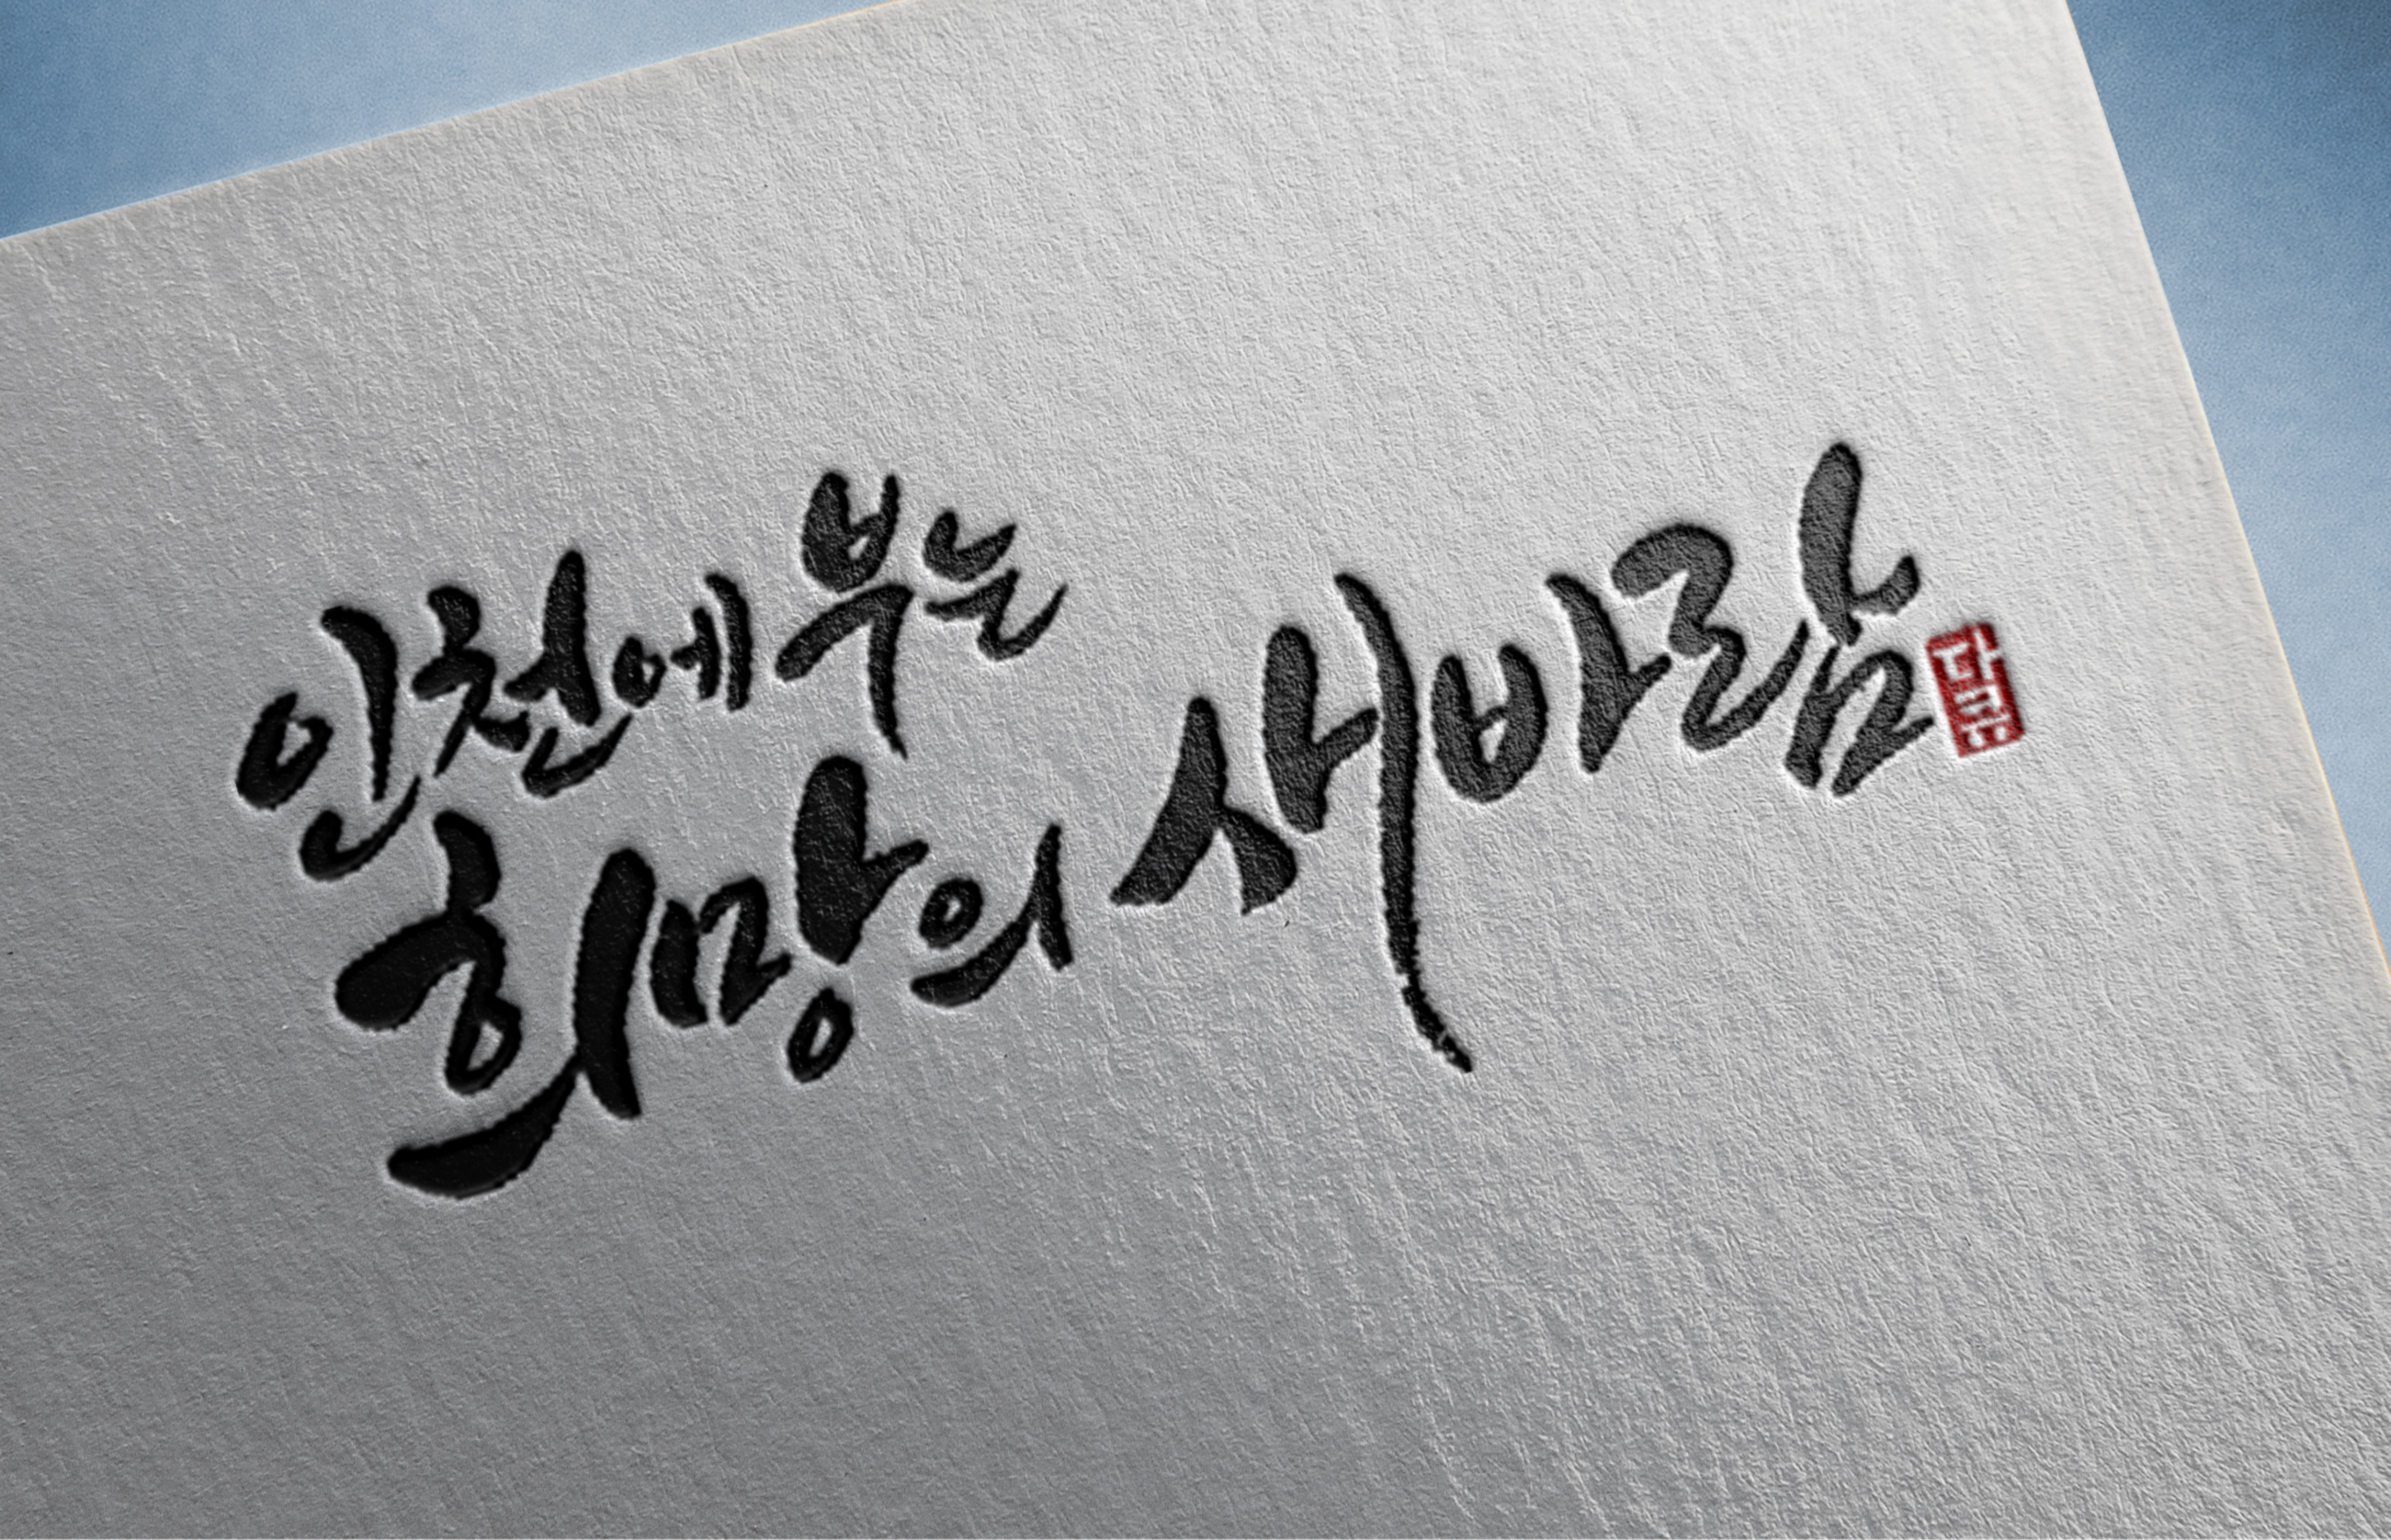 인천에 부는
희망의 새바람